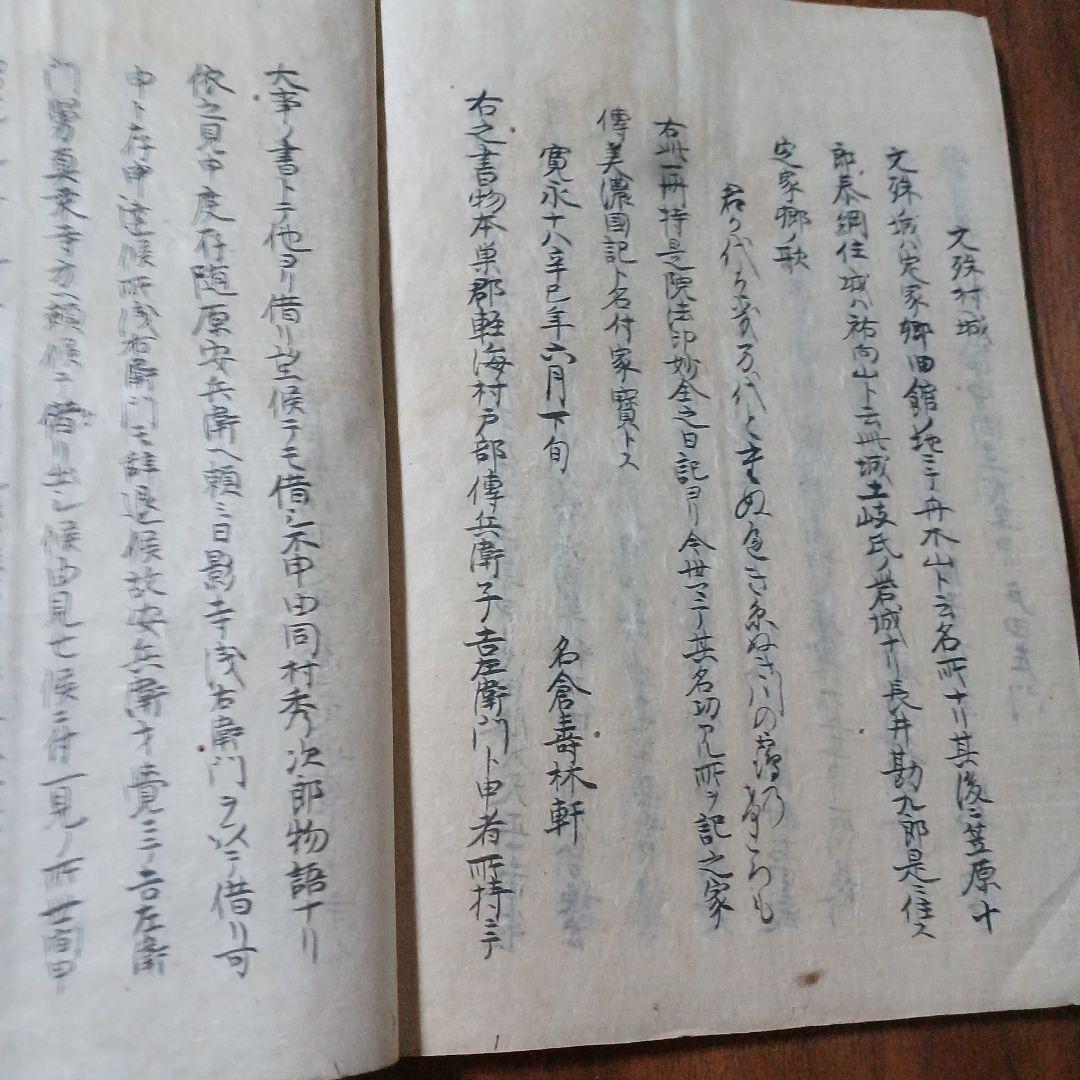 文殊村城
文殊城ハ定家郷旧舘ノ地ニテ舟木山ト云名所ナリ其後ニ笠原十
郎泰綱住城ハ祐向山ト云此城土岐氏ノ岩城ナリ長井勘九郎是ニ住ス
定家郷ノ歌
君か代ハ万代とも
右此一冊持是院法印妙全之日記ヨリ今世マテ其名功アル所ヲ記之家
傳美濃國記ト名付家寶トス
寛永十八辛巳年六月下旬
名倉壽林軒
右之書物本巣郡軽海村戸部傳兵衛子吉左衛門ト申者所持ニテ
大事ノ書トテ他ヨリ借リ望候テモ借シ不申由同村秀次郎物語ナリ
依之見申度存随原安兵衛ヘ頼ミ日影寺浅右衛門ヲ以テ借リ可
申ト存申達候所浅右衛門モ辞退候故安兵衛才覚ニテ吉左衛
門旁真乗寺方ヘ頼候テ借リ出シ候由見セ候ニ付一見ノ所世間